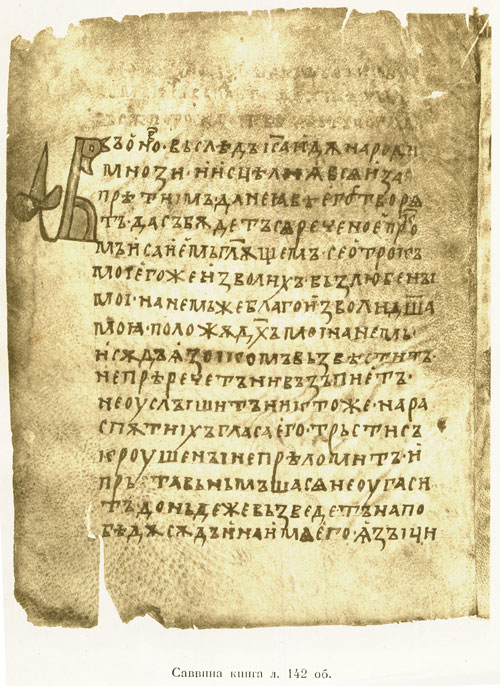 Въ оно · въслѣдъ іс҃а идѫ народи
мнози · и исцѣли ѧ всѧ и за
прѣти імъ да не ѣвѣ его творѧ
тъ · да събѫдетъ сѧ реченое про҃
мъ исаиемь гл҃ѭщемъ · се отрокъ
моі егоже изволихъ · възлюбены
моі · на немьже благоизволи дш҃а
моѣ · положѫ дх҃ъ моі на немь ·
и сѫдъ ѧзыкомъ възвѣститъ ·
не прѣречетъ ни възъпиетъ ·
не услъішитъ никтоже · на ра
спѫтиіхъ гласа его · тръсти съ
кроушены не прѣломитъ · и
пръта вьньмъша сѧ не угаси
тъ доньдеже възведетъ на по
бѣдѫ сѫдъ и на имѧ его · ѧзъіци
Саввина книга л. 142 об.